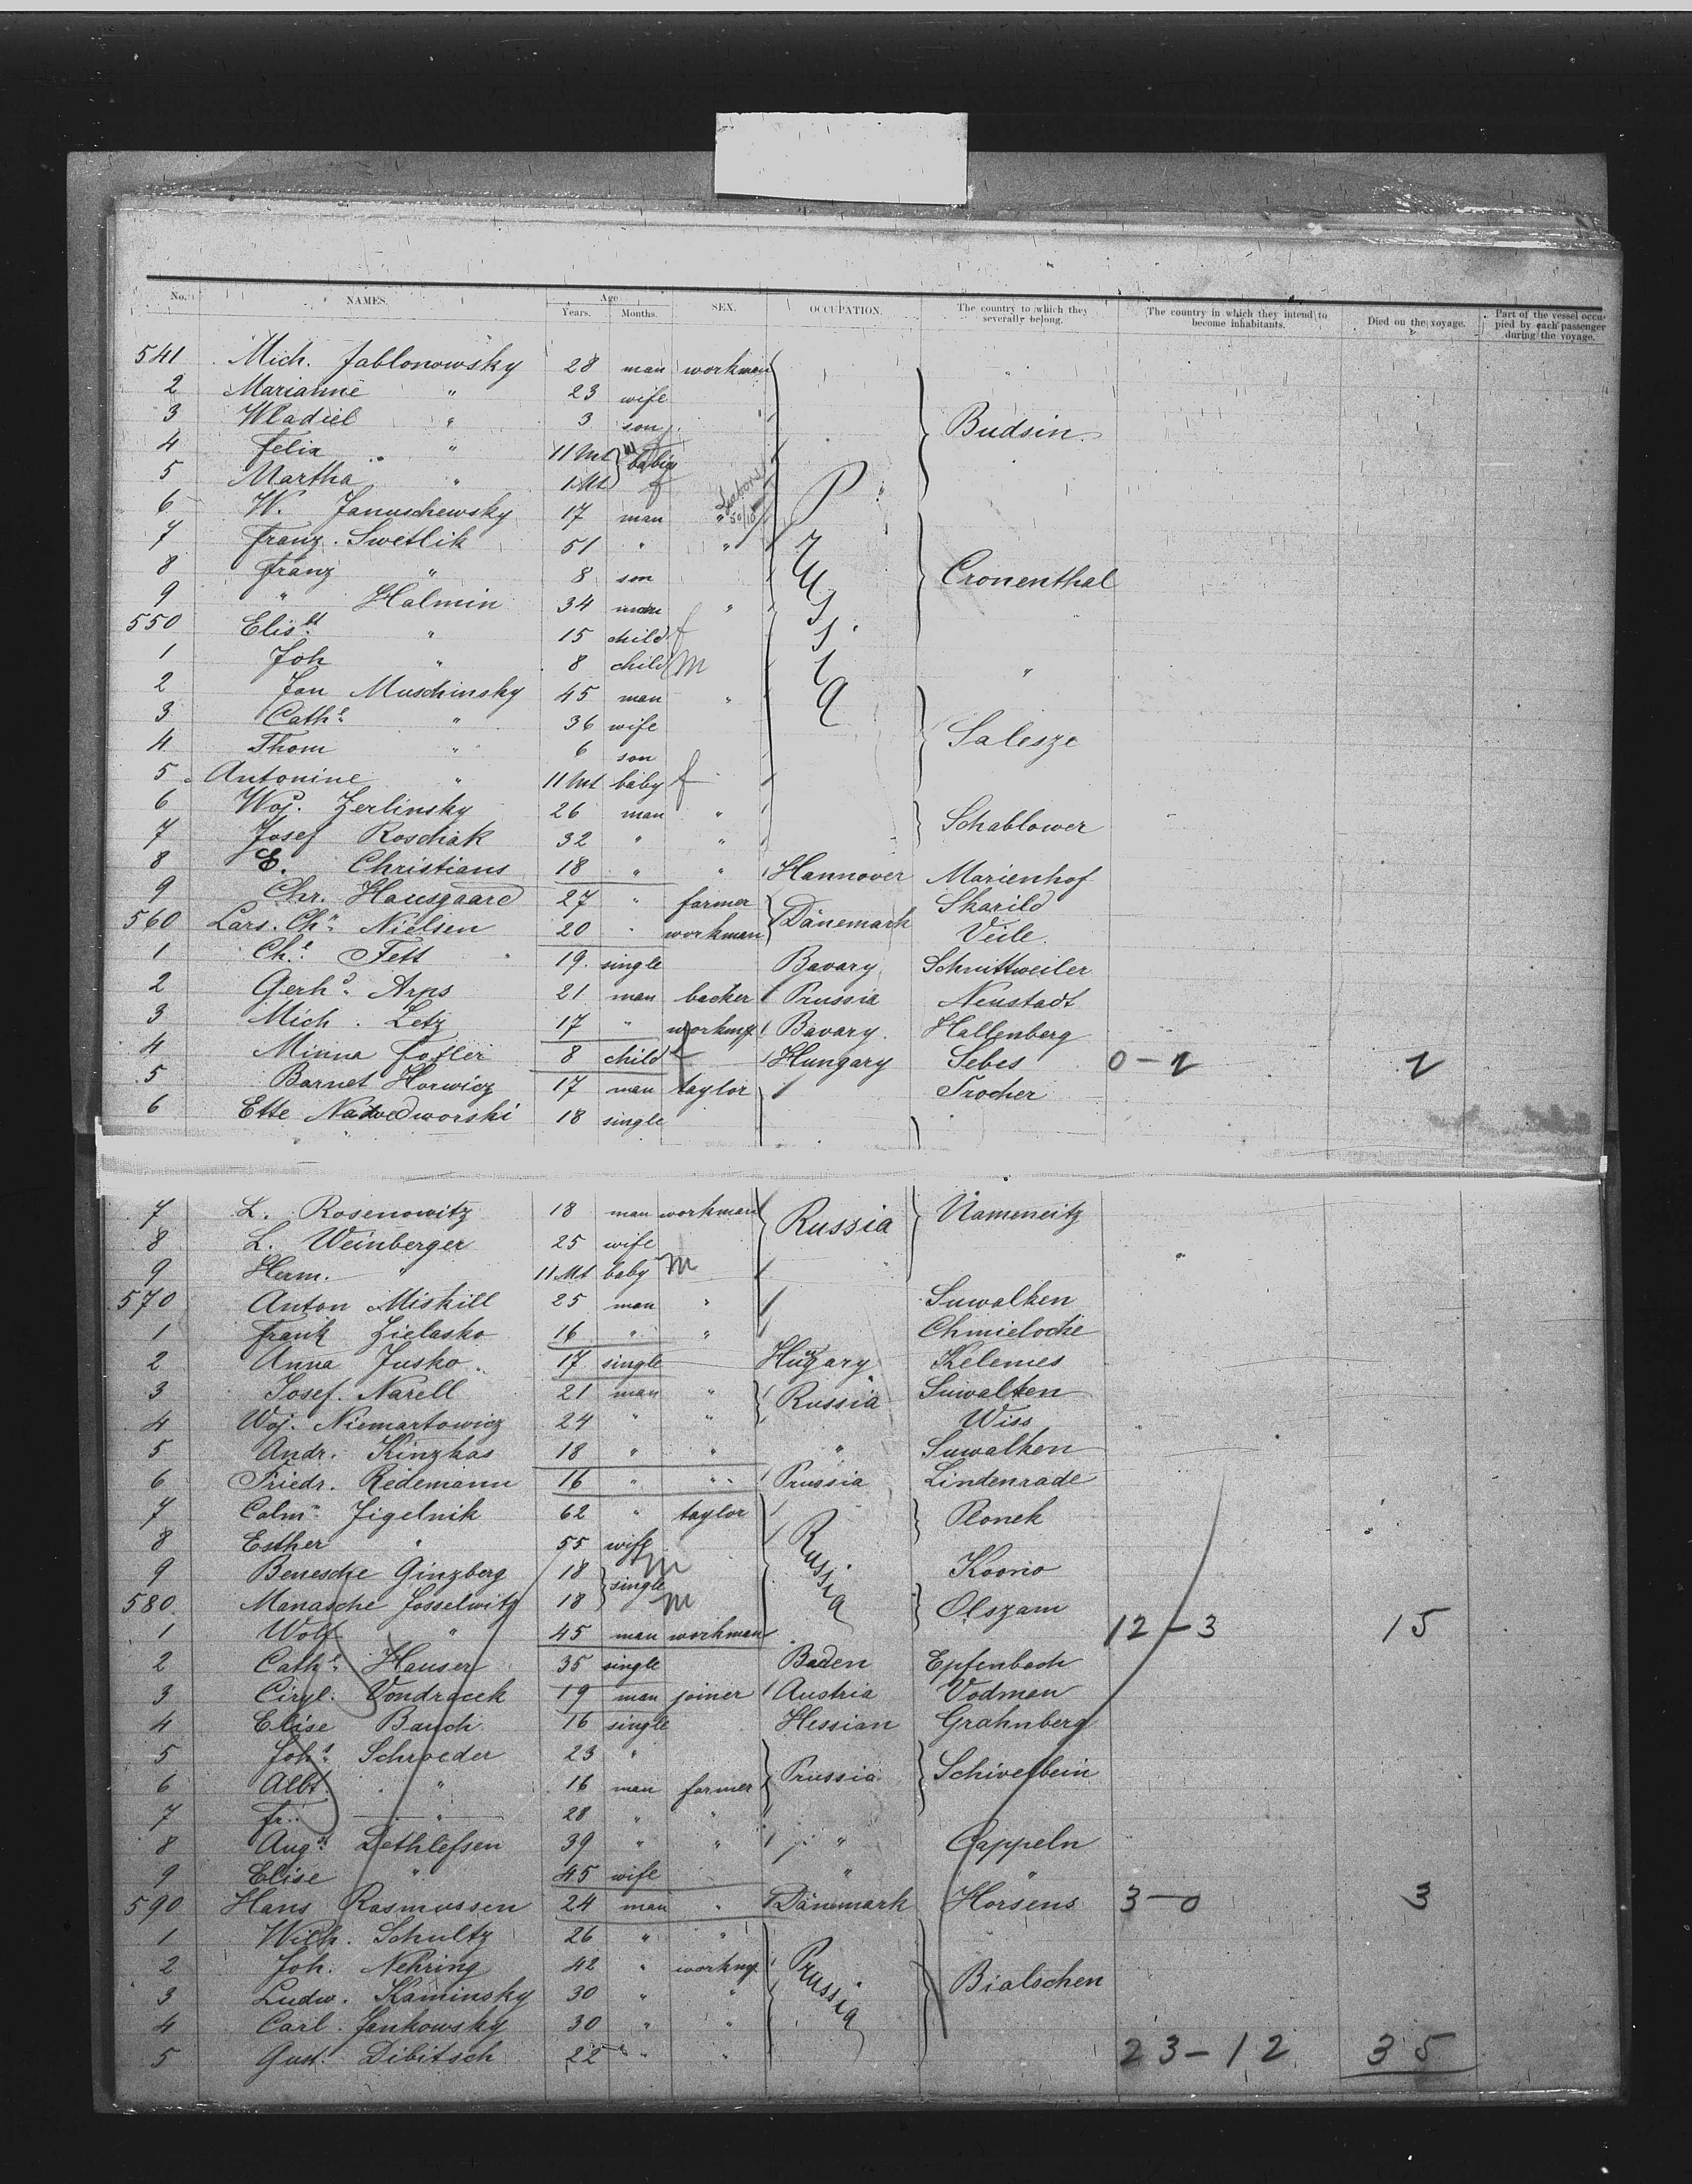 No. NAMES. Age Years. Months. SEX. OCCUPATION. The country to which they severally belong. The country in which they intend to become inhabitants. Died on the voyage. Part of the vessel occupied by each passenger during the voyage.
541 Mich. Jablonowsky 28 man workman
2 Marianne " 23 wife
3 Wladiel " 3 son Budsin
4 Felix " 11 Mt baby
5 Martha " 1 Mt f
6 W. Januschewsky 17 man " Prussia
7 Franz Swetlik 51 " "
8 Franz " 8 son Cronenthal
9 " Halmin 34 man "
550 Elisbt " 15 child f
1 Joh " 8 child m "
2 Jan Muschinsky 45 man "
3 Cathe " 36 wife Salesze
4 Thom " 6 son
5 Antonine " 11 Mt baby f
6 Woj. Zerlinsky 26 man " Schablower
7 Josef Roschak 32 " "
8 E. Christians 18 " " Hannover Marienhof
9 Chr. Hausgaard 27 " farmer Dänemark Skarild
560 Lars. Chn Nielsen 20 " workman Veile
1 Che Fett 19 single Bavary Schnittweiler
2 Gerhd Arps 21 man backer Prussia Neustadt
3 Mich. Letz 17 " workmn Bavary Hallenberg
4 Minna Fofler 8 child f Hungary Sebes 0-2 2
5 Barnet Horwicz 17 man taylor Trocher
6 Ette Nadwedworski 18 single
7 L. Rosenowitz 18 man workman Russia Nameneitz
8 L. Weinberger 25 wife "
9 Herm. " 11 Mt baby m
570 Anton Miskill 25 man " Suwalken
1 Frank Zielasko 16 " " Chmieloche
2 Anna Jusko 17 single Hugary Kelemes
3 Josef Narell 21 man " Russia Suwalken
4 Woj. Niemartowicz 24 " " Wiss
5 Andr. Kinzkas 18 " " " Suwalken
6 Friedr. Redemann 16 " " Prussia Lindenrade
7 Calmn Jigelnik 62 " taylor Russia Plonek
8 Esther " 55 wife
9 Benesche Ginzberg 18 single m Koono
580 Manasche Josselwitz 18 m Olszam
1 Wolf " 45 man workman 12-3 15
2 Cathe Hauser 35 single Baden Epfenbach
3 Ciryl. Vondracek 19 man joiner Austria Vodman
4 Elise Bauch 16 single Hessian Grahnberg
5 Johe Schroeder 23 " Prussia Schivelbein
6 Albt. " 16 man farmer
7 Fr. " 28 " "
8 Augt Dethlefsen 39 " " " Cappeln
9 Elise " 45 wife " "
590 Hans Rasmussen 24 man " Dänemark Horsens 3-0 3
1 Wilh. Schultz 26 " "
2 Joh. Nehring 42 " workmn Prussia Bialschen
3 Ludw. Kaminsky 30 " "
4 Carl Jankowsky 30 " "
5 Gust. Dibitsch 22 " " 23-12 35